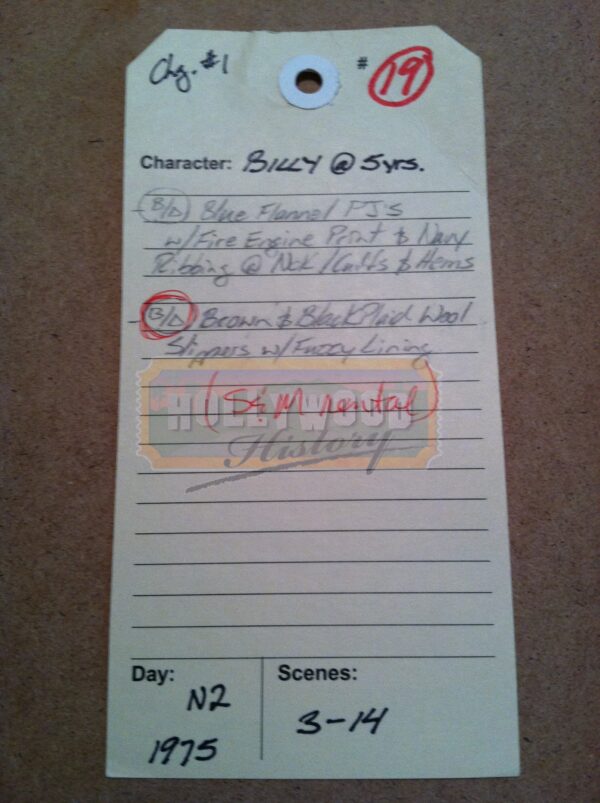 Chg. #1 # 19
Character: BILLY @ 5yrs.
B/D Blue Flannel PJ's
w/Fire Engine Print & Navy
Ribbing @ Nck/Cuffs & Hems
B/D Brown & Black Plaid Wool
Slippers w/Fuzzy Lining
(S&M rental)
HOLLYWOOD
History
Day: Scenes:
N2
3-14
1975